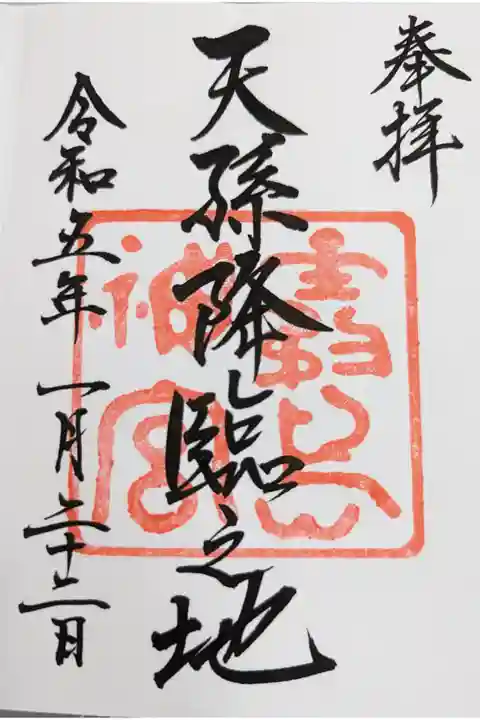 奉拝
天孫降臨之地
令和五年一月二十二日